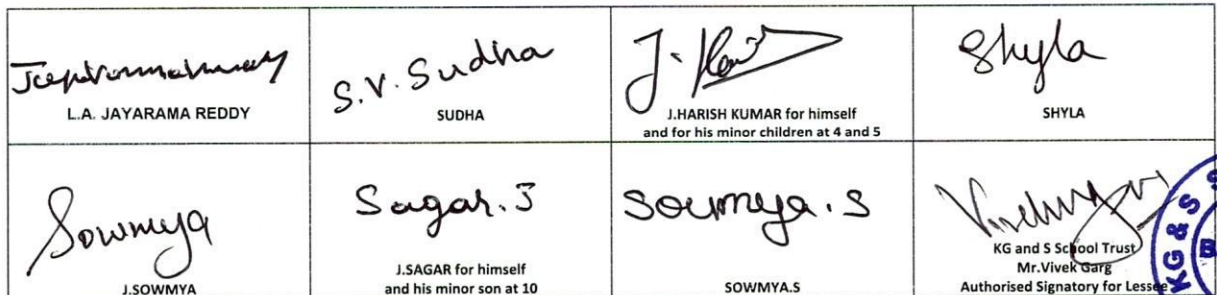 L.A. JAYARAMA REDDY
S.V. Sudha
SUDHA
J. Hari
J.HARISH KUMAR for himself
and for his minor children at 4 and 5
Shyla
SHYLA
Sowmya
J.SOWMYA
Sagar. J
J.SAGAR for himself
and his minor son at 10
Soumya. S
SOWMYA.S
KG and S School Trust
Mr.Vivek Garg
Authorised Signatory for Lessee
KG & S
B